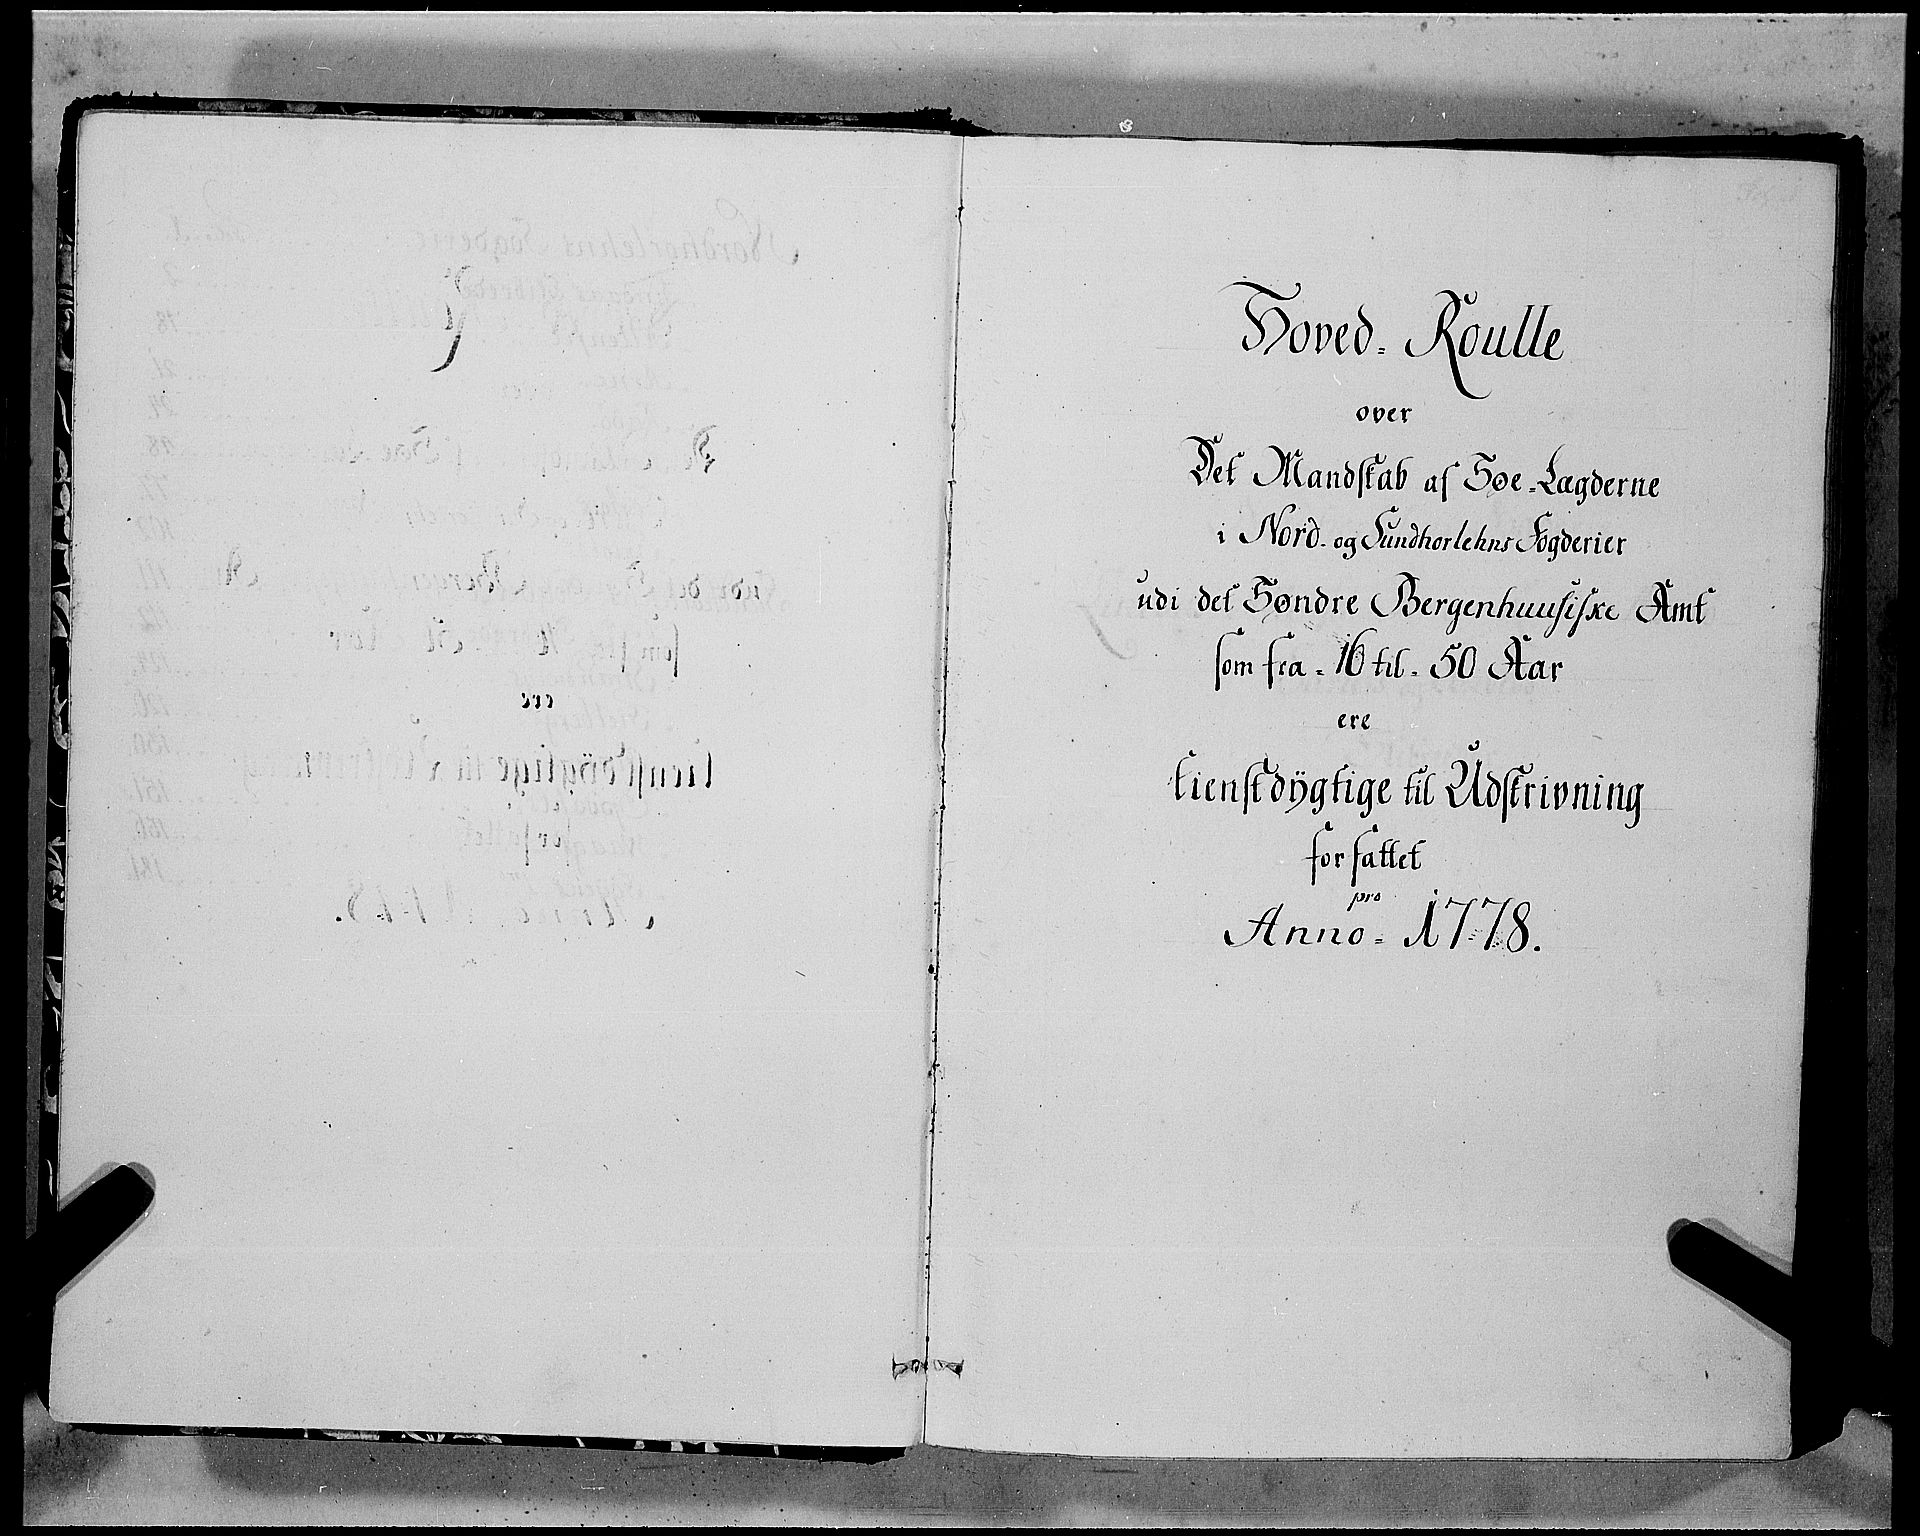 Hoved- Roulle
over
Det Mandskab af Søe-Lægderne
i Nord- og Sundhorlehns Fogderier
udi det Søndre Bergenhuusiske Amt
som fra - 16 til - 50 Aar
ere
tienstdÿgtige til Udskrivning
forfattet
pro
Anno - 1778.